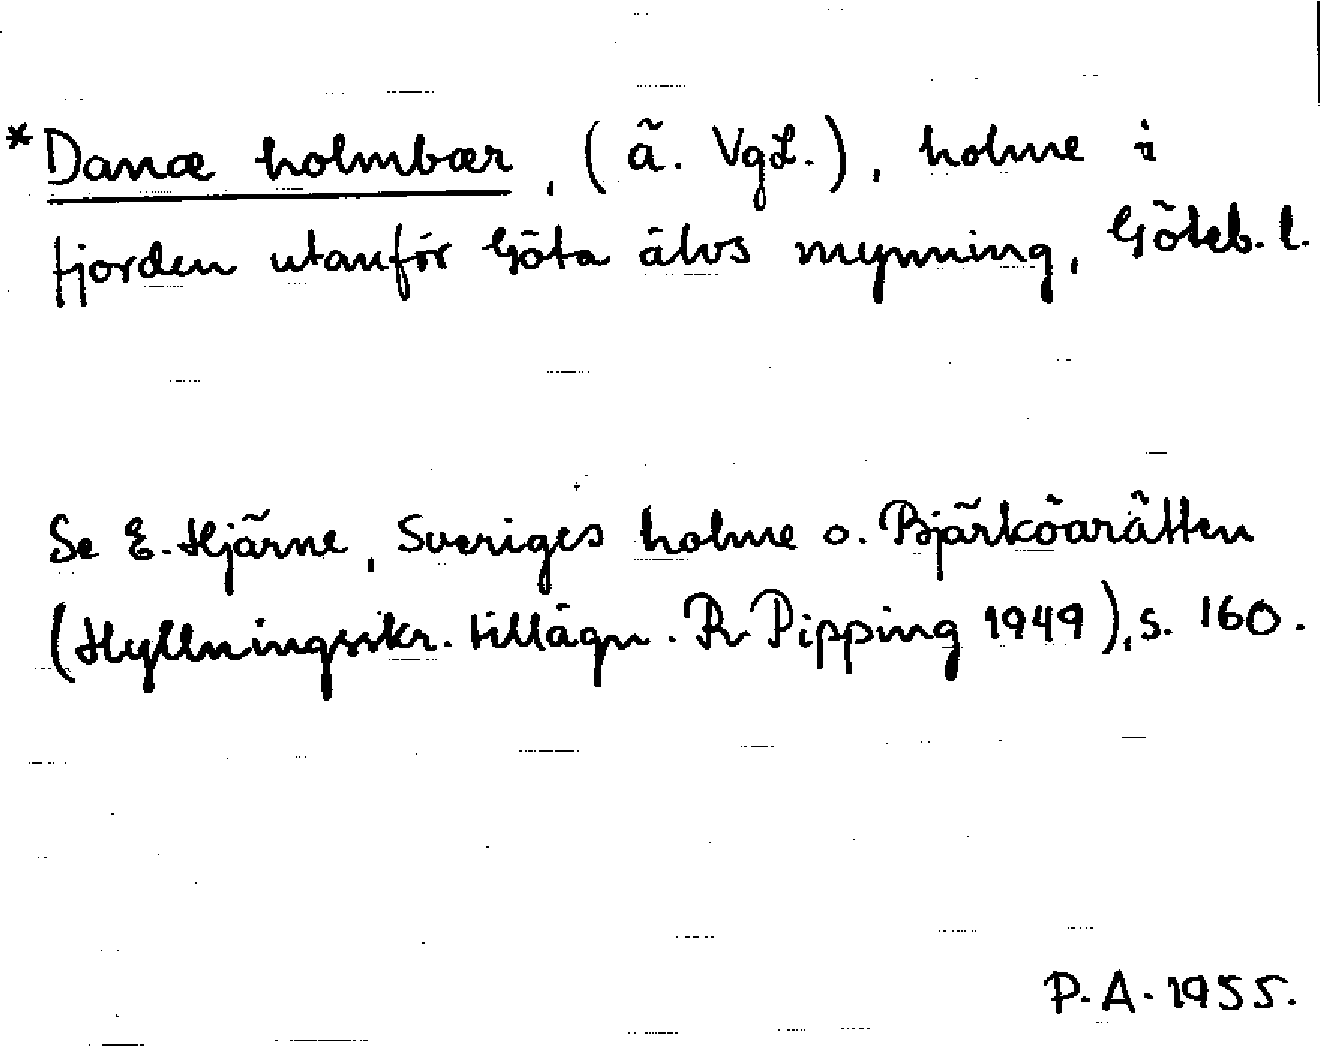 *Danæ holmbær, (ä. VgL.), holme i
fjorden utanför Göta älvs mynning, Göteb. l.
Se E. Hjärne, Sveriges holme o. Bjärköarätten
(Hyllningsskr. tillägn. R Pipping 1949), s. 160.
P. A. 1955.